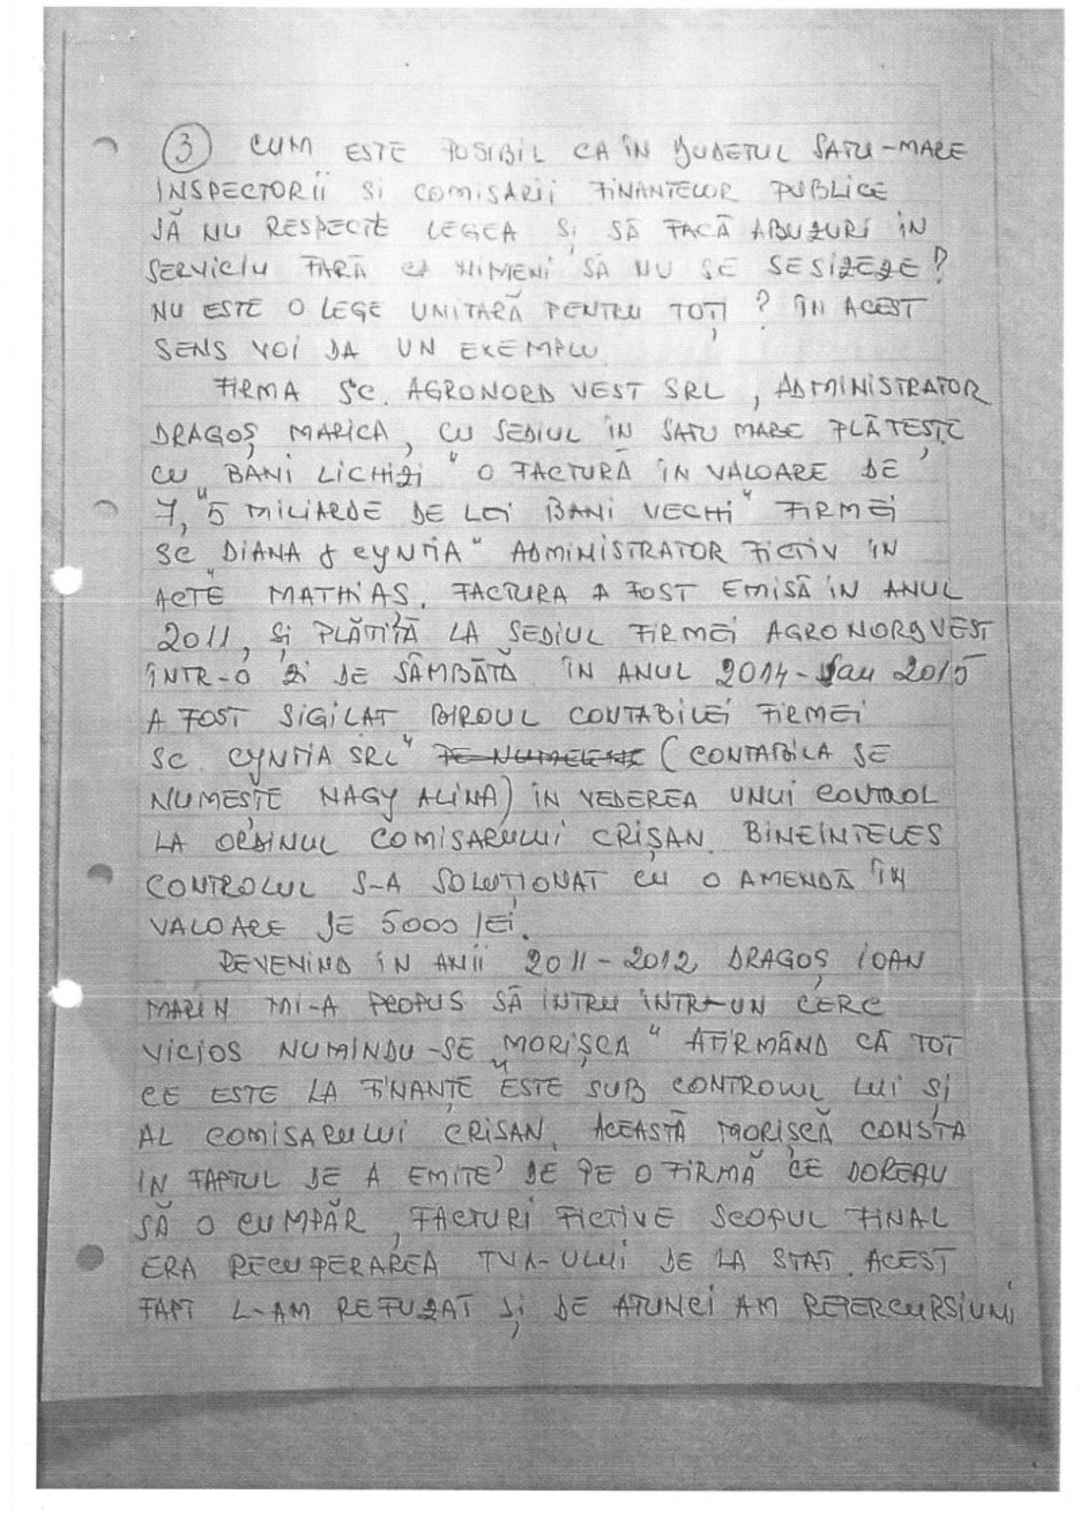 ③ CUM ESTE POSIBIL CA ÎN JUDETUL SATU-MARE
INSPECTORII SI COMISARII FINANTELOR PUBLICE
SĂ NU RESPECTE LEGEA SI SĂ FACĂ ABUZURI ÎN
SERVICIU FARĂ CA NIMENI SĂ NU SE SESIZEZE?
NU ESTE O LEGE UNITARĂ PENTRU TOȚI? ÎN ACEST
SENS VOI DA UN EXEMPLU
FIRMA SC. AGRONORD VEST SRL, ADMINISTRATOR
DRAGOȘ MARICA, CU SEDIUL ÎN SATU MARE PLĂTEȘTE
CU „BANI LICHIZI" O FACTURĂ ÎN VALOARE DE
7,"5 MILIARDE DE LEI BANI VECHI" FIRMEI
SC „DIANA & CYNTIA" ADMINISTRATOR FICTIV ÎN
ACTE MATHIAS. FACTURA A FOST EMISĂ ÎN ANUL
2011, ȘI PLĂTITĂ LA SEDIUL FIRMEI AGRONORDVEST
ÎNTR-O ZI DE SÂMBĂTĂ. ÎN ANUL 2014-sau 2015
A FOST SIGILAT BIROUL CONTABILEI FIRMEI
SC. CYNTIA SRL" PE NUMELE (CONTABILA SE
NUMESTE NAGY ALINA) ÎN VEDEREA UNUI CONTROL
LA ORDINUL COMISARULUI CRIȘAN. BINEINTELES
CONTROLUL S-A SOLUȚIONAT CU O AMENDĂ ÎN
VALOARE DE 5000 LEI.
REVENIND ÎN ANII 2011-2012, DRAGOȘ IOAN
MARIN MI-A PROPUS SĂ INTRU ÎNTR-UN CERC
VICIOS NUMINDU-SE „MORIȘCA" AFIRMÂND CĂ TOT
CE ESTE LA FINANȚE ESTE SUB CONTROLUL LUI ȘI
AL COMISARULUI CRIȘAN. ACEASTĂ MORIȘCĂ CONSTA
IN FAPTUL DE A EMITE, DE PE O FIRMĂ CE DOREAU
SĂ O CUMPĂR, FACTURI FICTIVE SCOPUL FINAL
ERA RECUPERAREA TVA-ULUI DE LA STAT. ACEST
FAPT L-AM REFUZAT ȘI DE ATUNCI AM REPERCURSIUNI